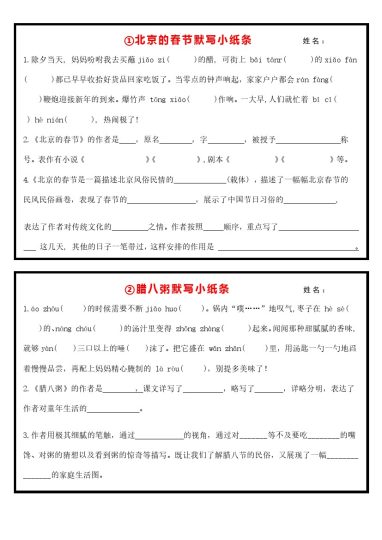 ①北京的春节默写小纸条 姓 名：
1.除夕当天，妈妈吩咐我去买蘸 jiǎo zi( )的醋，可街上 bāi tānr( )的xiǎo fàn
( )都已早早收拾好货品回家吃饭了。当零点的钟声响起，家家户户都会rán fàng(
)鞭炮迎接新年的到来。爆竹声 tōng xiāo( )作响。一大早,人们就忙着 bǐ cǐ(
)hè nián( )，热闹极了!
2.《北京的春节》的作者是____，原名________，字__________，被授予________________称
号。表作有小说《 》《 》,剧本《 》《 》等。
4.《北京的春节是一篇描述北京风俗民情的_____________(载体)，描述了一幅幅北京春节的
民风民俗画卷，表现了春节的______________，展示了中国节日习俗的_____________,
表达了作者对传统文化的________之情。作者按照_____顺序，重点写了________________
___ 这几天，其他的日子一笔带过，这样安排的作用是 ____________________________。
②腊八粥默写小纸条 姓 名：
1.áo zhōu( )的时候需要不断 jiǎo huo( )。锅内“噗……”地叹气,枣子在 hè sè(
)的、nóng chóu( )的汤汁里变得 zhǒng zhàng( )起来。闻闻那种甜腻腻的香味,
就够 yàn( )三口以上的唾( )沫了。把它盛在 wǎn zhǎn( )里，用汤匙一勺一勺地舀
着慢慢品尝，再配上妈妈精心腌制的 là ròu( )，别提多美味了!
2.《腊八粥》的作者是________,课文详写了__________，略写了________，详略分明，表达了
作者对童年生活的_____________。
3.作者用极其细腻的笔触，通过____________的视角，通过对_______等不及要吃________的嘴
馋、对粥的猜想以及看到粥的惊奇等描写。既让我们了解腊八节的民俗，又展现了一幅________
_______的家庭生活图。